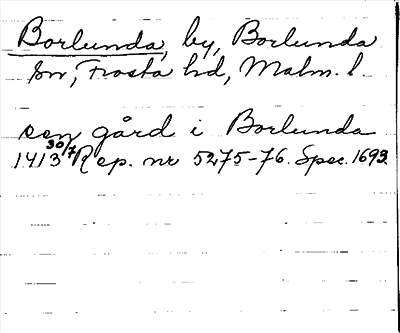 Borlunda, by, Borlunda
sn, Frosta hd, Malm. l.
een gård i Borlunda
1413 30/7 Rep. nr 5275-76. Spec. 1693